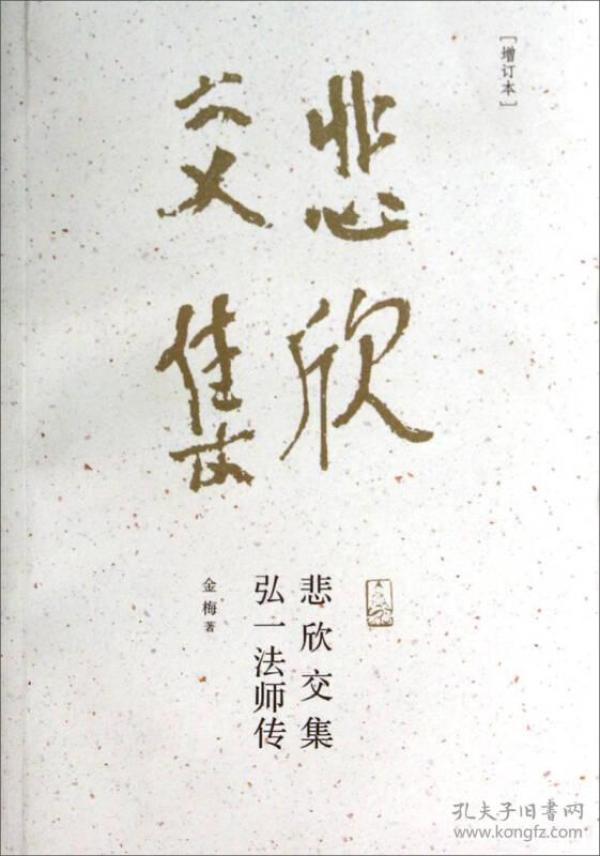 [增订本]
悲欣
交集
悲欣交集
弘一法师传
金梅 著
孔夫子旧书网
www.kongfz.com